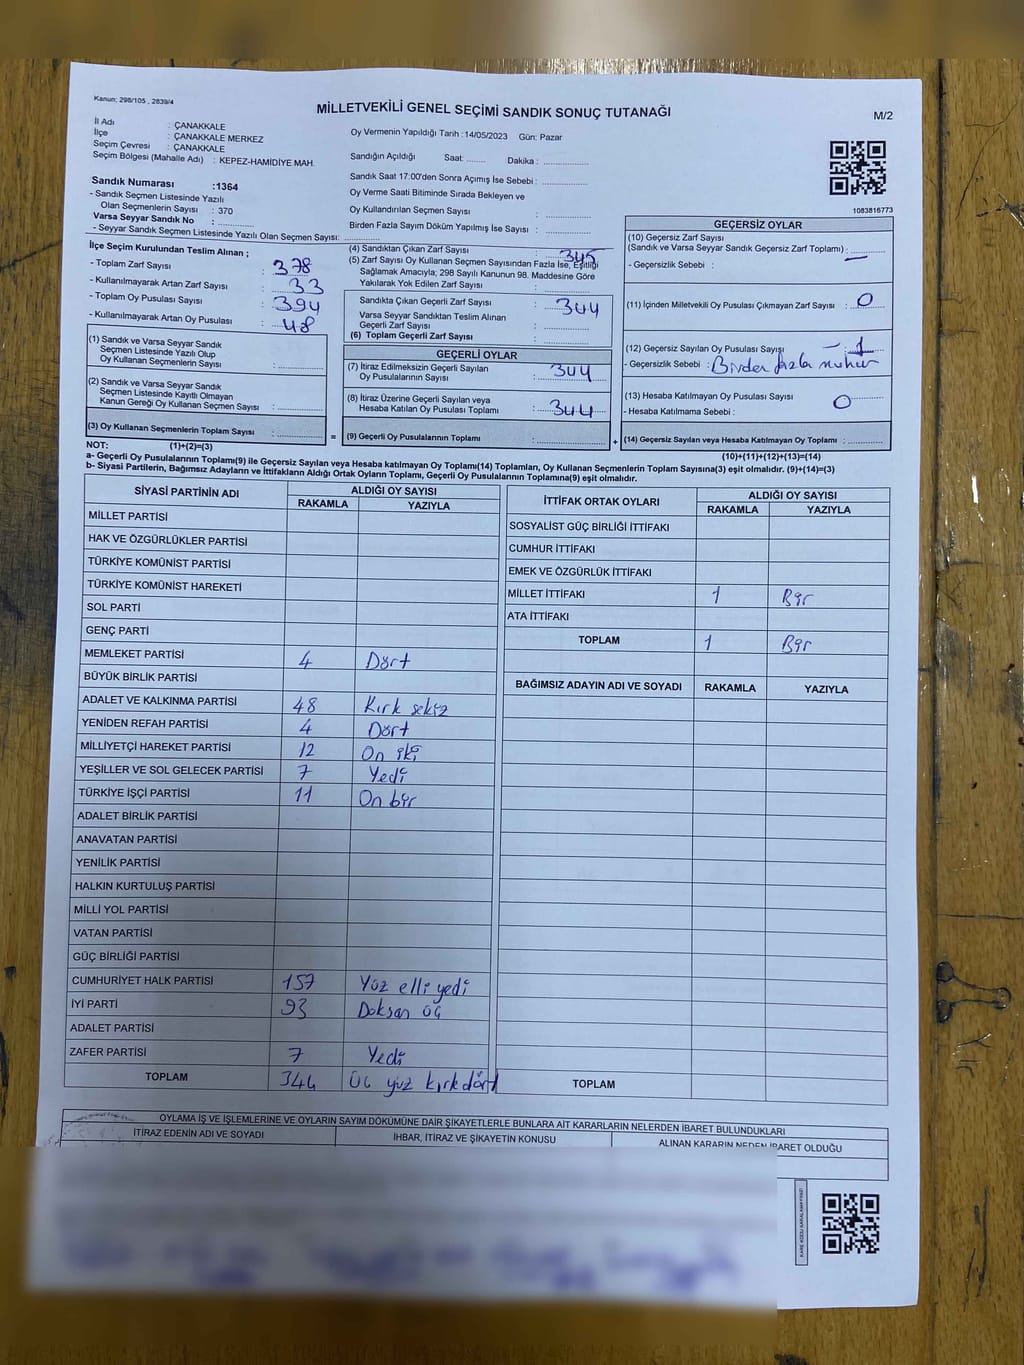 Kanun; 298/105 , 2839/4
MİLLETVEKİLİ GENEL SEÇİMİ SANDIK SONUÇ TUTANAĞI
M/2
İl Adı : ÇANAKKALE
İlçe : ÇANAKKALE MERKEZ
Seçim Çevresi : ÇANAKKALE
Seçim Bölgesi (Mahalle Adı) : KEPEZ-HAMİDİYE MAH.
Sandık Numarası :1364
- Sandık Seçmen Listesinde Yazılı
Olan Seçmenlerin Sayısı : 370
Varsa Seyyar Sandık No :
- Seyyar Sandık Seçmen Listesinde Yazılı Olan Seçmen Sayısı:
Oy Vermenin Yapıldığı Tarih :14/05/2023 Gün: Pazar
Sandığın Açıldığı Saat: Dakika :
Sandık Saat 17:00'den Sonra Açımış İse Sebebi :
Oy Verme Saati Bitiminde Sırada Bekleyen ve
Oy Kullandırılan Seçmen Sayısı :
Birden Fazla Sayım Döküm Yapılmış İse Sayısı :
1083816773
İlçe Seçim Kurulundan Teslim Alınan ;
- Toplam Zarf Sayısı : 378
- Kullanılmayarak Artan Zarf Sayısı : 33
- Toplam Oy Pusulası Sayısı : 394
- Kullanılmayarak Artan Oy Pusulası : 48
(1) Sandık ve Varsa Seyyar Sandık
Seçmen Listesinde Yazılı Olup
Oy Kullanan Seçmenlerin Sayısı :
(2) Sandık ve Varsa Seyyar Sandık
Seçmen Listesinde Kayıtlı Olmayan
Kanun Gereği Oy Kullanan Seçmen Sayısı :
(3) Oy Kullanan Seçmenlerin Toplam Sayısı :
(4) Sandıktan Çıkan Zarf Sayısı : 345
(5) Zarf Sayısı Oy Kullanan Seçmen Sayısından Fazla İse, Eşitliği
Sağlamak Amacıyla; 298 Sayılı Kanunun 98. Maddesine Göre
Yakılarak Yok Edilen Zarf Sayısı :
Sandıkta Çıkan Geçerli Zarf Sayısı : 344
Varsa Seyyar Sandıktan Teslim Alınan
Geçerli Zarf Sayısı :
(6) Toplam Geçerli Zarf Sayısı :
GEÇERLİ OYLAR
(7) İtiraz Edilmeksizin Geçerli Sayılan
Oy Pusulalarının Sayısı : 344
(8) İtiraz Üzerine Geçerli Sayılan veya
Hesaba Katılan Oy Pusulası Toplamı : 344
= (9) Geçerli Oy Pusulalarının Toplamı : +
GEÇERSİZ OYLAR
(10) Geçersiz Zarf Sayısı
(Sandık ve Varsa Seyyar Sandık Geçersiz Zarf Toplamı) : —
- Geçersizlik Sebebi :
(11) İçinden Milletvekili Oy Pusulası Çıkmayan Zarf Sayısı : 0
(12) Geçersiz Sayılan Oy Pusulası Sayısı : 1
- Geçersizlik Sebebi : Birden fazla mühür
(13) Hesaba Katılmayan Oy Pusulası Sayısı 0
- Hesaba Katılmama Sebebi :
(14) Geçersiz Sayılan veya Hesaba Katılmayan Oy Toplamı :
NOT: (1)+(2)=(3)
(10)+(11)+(12)+(13)=(14)
a- Geçerli Oy Pusulalarının Toplamı(9) ile Geçersiz Sayılan veya Hesaba katılmayan Oy Toplamı(14) Toplamları, Oy Kullanan Seçmenlerin Toplam Sayısına(3) eşit olmalıdır. (9)+(14)=(3)
b- Siyasi Partilerin, Bağımsız Adayların ve İttifakların Aldığı Ortak Oyların Toplamı, Geçerli Oy Pusulalarının Toplamına(9) eşit olmalıdır.
SİYASİ PARTİNİN ADI ALDIĞI OY SAYISI
RAKAMLA YAZIYLA
MİLLET PARTİSİ
HAK VE ÖZGÜRLÜKLER PARTİSİ
TÜRKİYE KOMÜNİST PARTİSİ
TÜRKİYE KOMÜNİST HAREKETİ
SOL PARTİ
GENÇ PARTİ
MEMLEKET PARTİSİ 4 Dört
BÜYÜK BİRLİK PARTİSİ
ADALET VE KALKINMA PARTİSİ 48 Kırk sekiz
YENİDEN REFAH PARTİSİ 4 Dört
MİLLİYETÇİ HAREKET PARTİSİ 12 On iki
YEŞİLLER VE SOL GELECEK PARTİSİ 7 Yedi
TÜRKİYE İŞÇİ PARTİSİ 11 On bir
ADALET BİRLİK PARTİSİ
ANAVATAN PARTİSİ
YENİLİK PARTİSİ
HALKIN KURTULUŞ PARTİSİ
MİLLİ YOL PARTİSİ
VATAN PARTİSİ
GÜÇ BİRLİĞİ PARTİSİ
CUMHURİYET HALK PARTİSİ 157 Yüz elli yedi
İYİ PARTİ 93 Doksan üç
ADALET PARTİSİ
ZAFER PARTİSİ 7 Yedi
TOPLAM 344 Üç yüz kırk dört
İTTİFAK ORTAK OYLARI ALDIĞI OY SAYISI
RAKAMLA YAZIYLA
SOSYALİST GÜÇ BİRLİĞİ İTTİFAKI
CUMHUR İTTİFAKI
EMEK VE ÖZGÜRLÜK İTTİFAKI
MİLLET İTTİFAKI 1 Bir
ATA İTTİFAKI
TOPLAM 1 Bir
BAĞIMSIZ ADAYIN ADI VE SOYADI RAKAMLA YAZIYLA
TOPLAM
OYLAMA İŞ VE İŞLEMLERİNE VE OYLARIN SAYIM DÖKÜMÜNE DAİR ŞİKAYETLERLE BUNLARA AİT KARARLARIN NELERDEN İBARET BULUNDUKLARI
İTİRAZ EDENİN ADI VE SOYADI İHBAR, İTİRAZ VE ŞİKAYETİN KONUSU ALINAN KARARIN NEDEN İBARET OLDUĞU